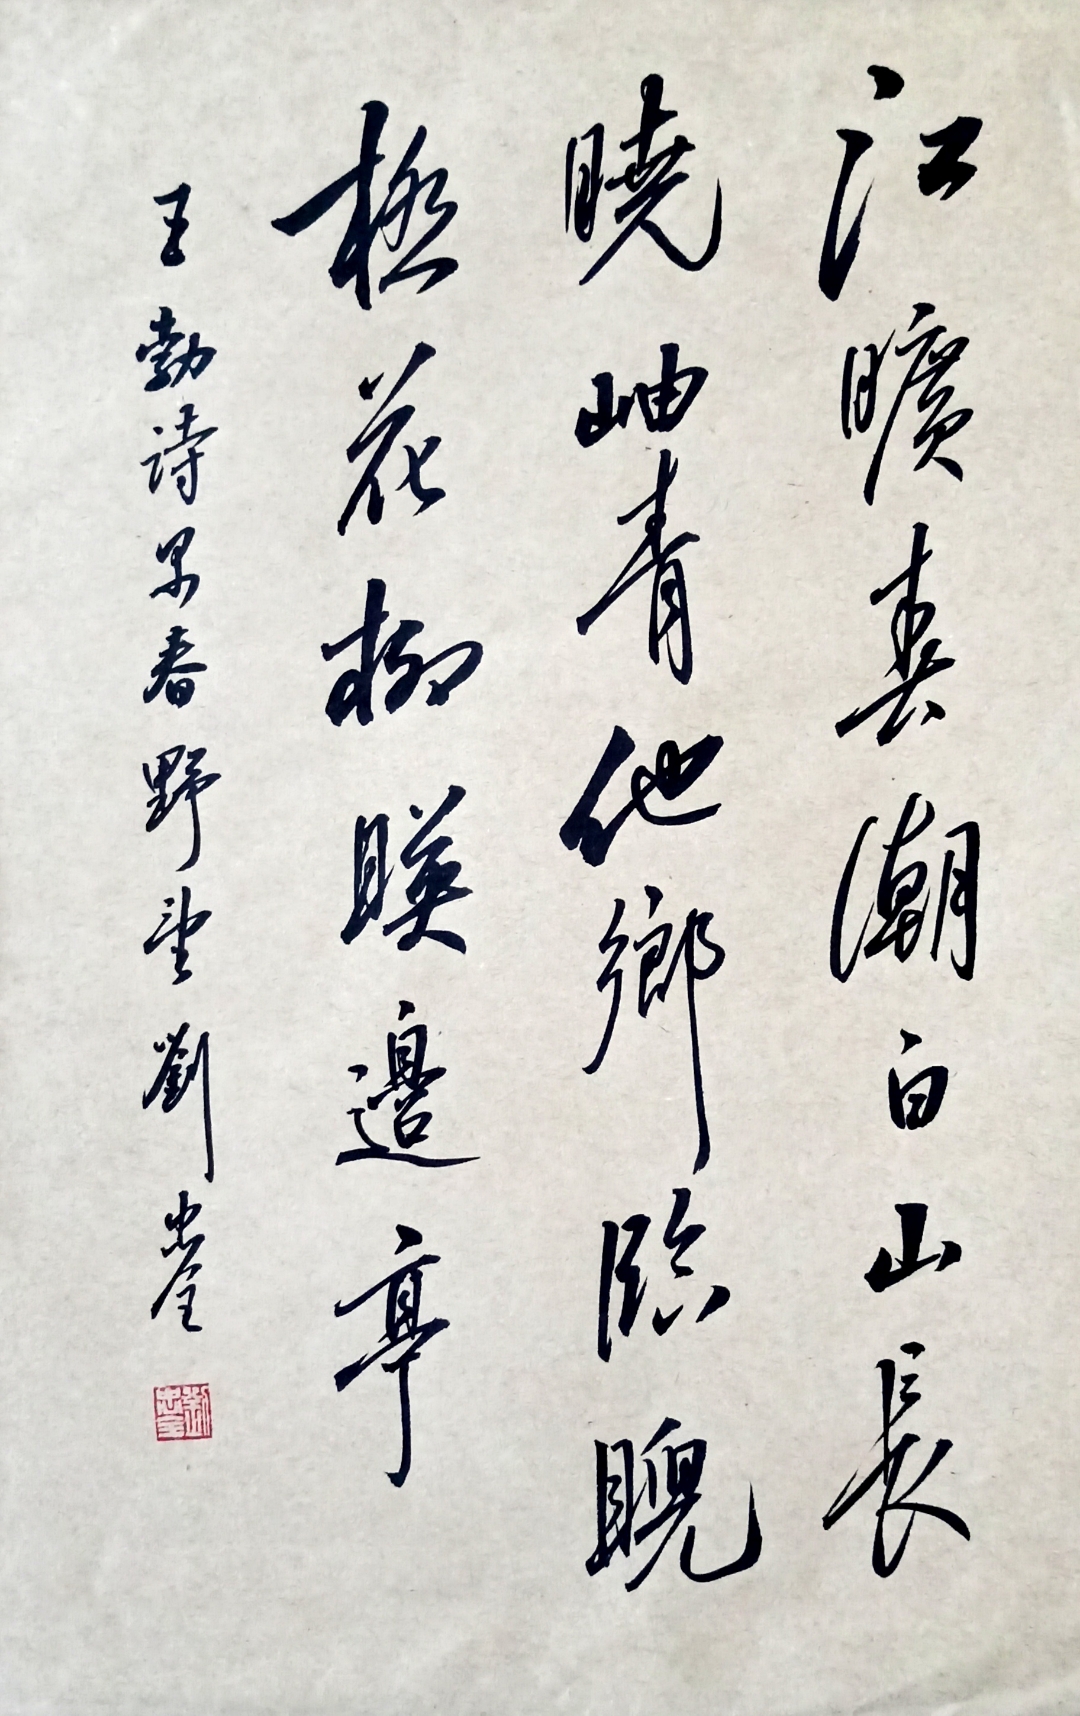 江曠春潮白山長
曉岫青他鄉臨睨
極花柳暎邊亭
王勃詩早春野望 劉忠全
劉忠全